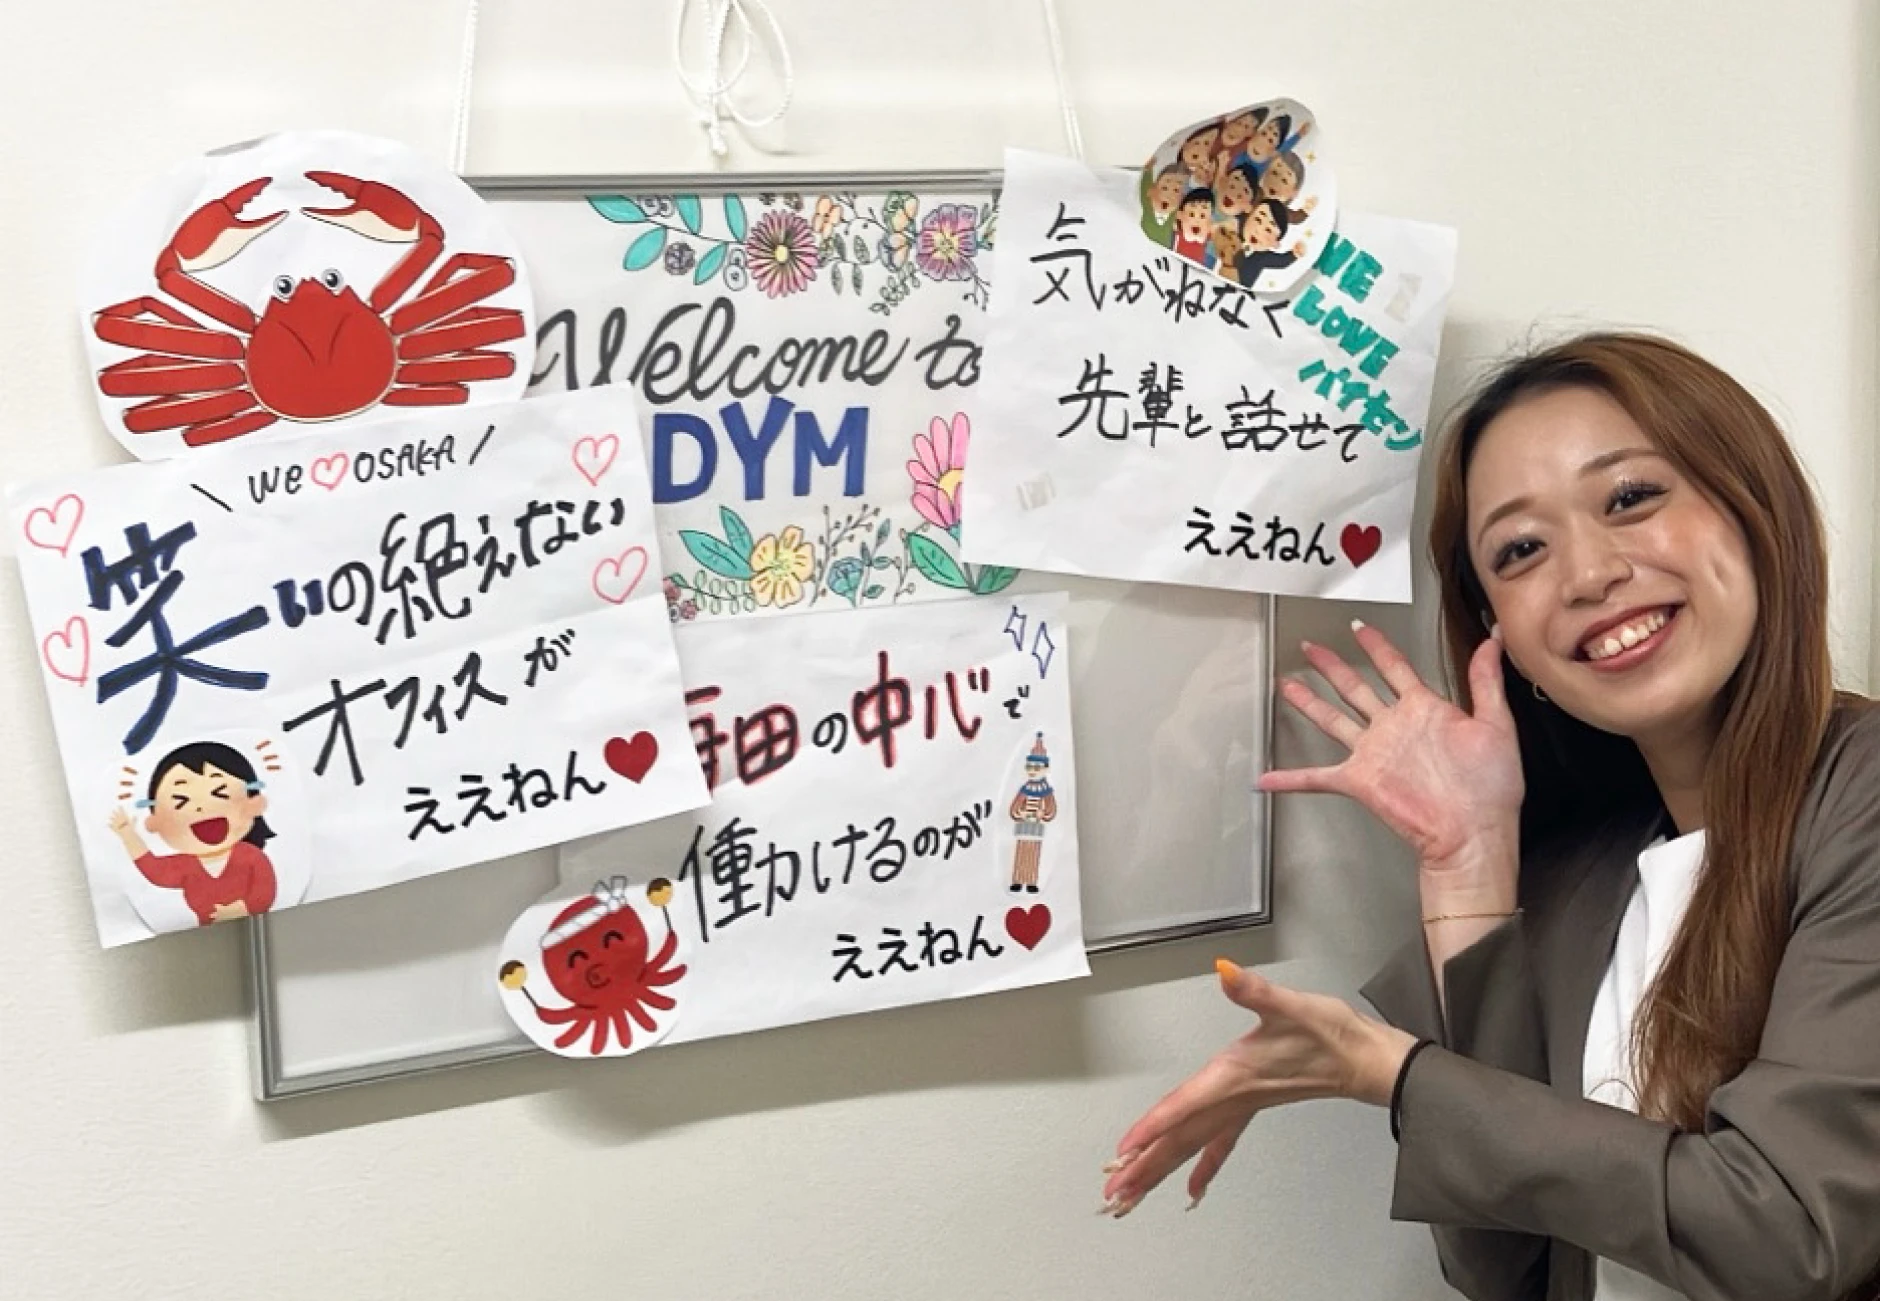 Welcome to
DYM
\ We♡OSAKA /
笑いの絶えない
オフィスが
ええねん♥
気がねなく
先輩と話せて
ええねん♥
WE
LOVE
パイセン
梅田の中心で
働けるのが
ええねん♥